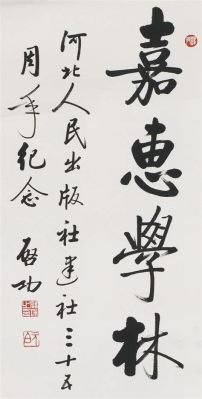 嘉惠學林
河北人民出版社建社三十五
周年纪念
啓功